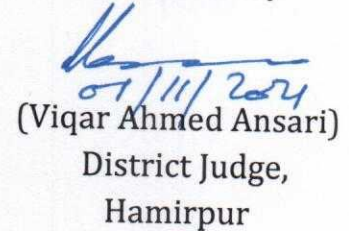 01/11/2024
(Viqar Ahmed Ansari)
District Judge,
Hamirpur